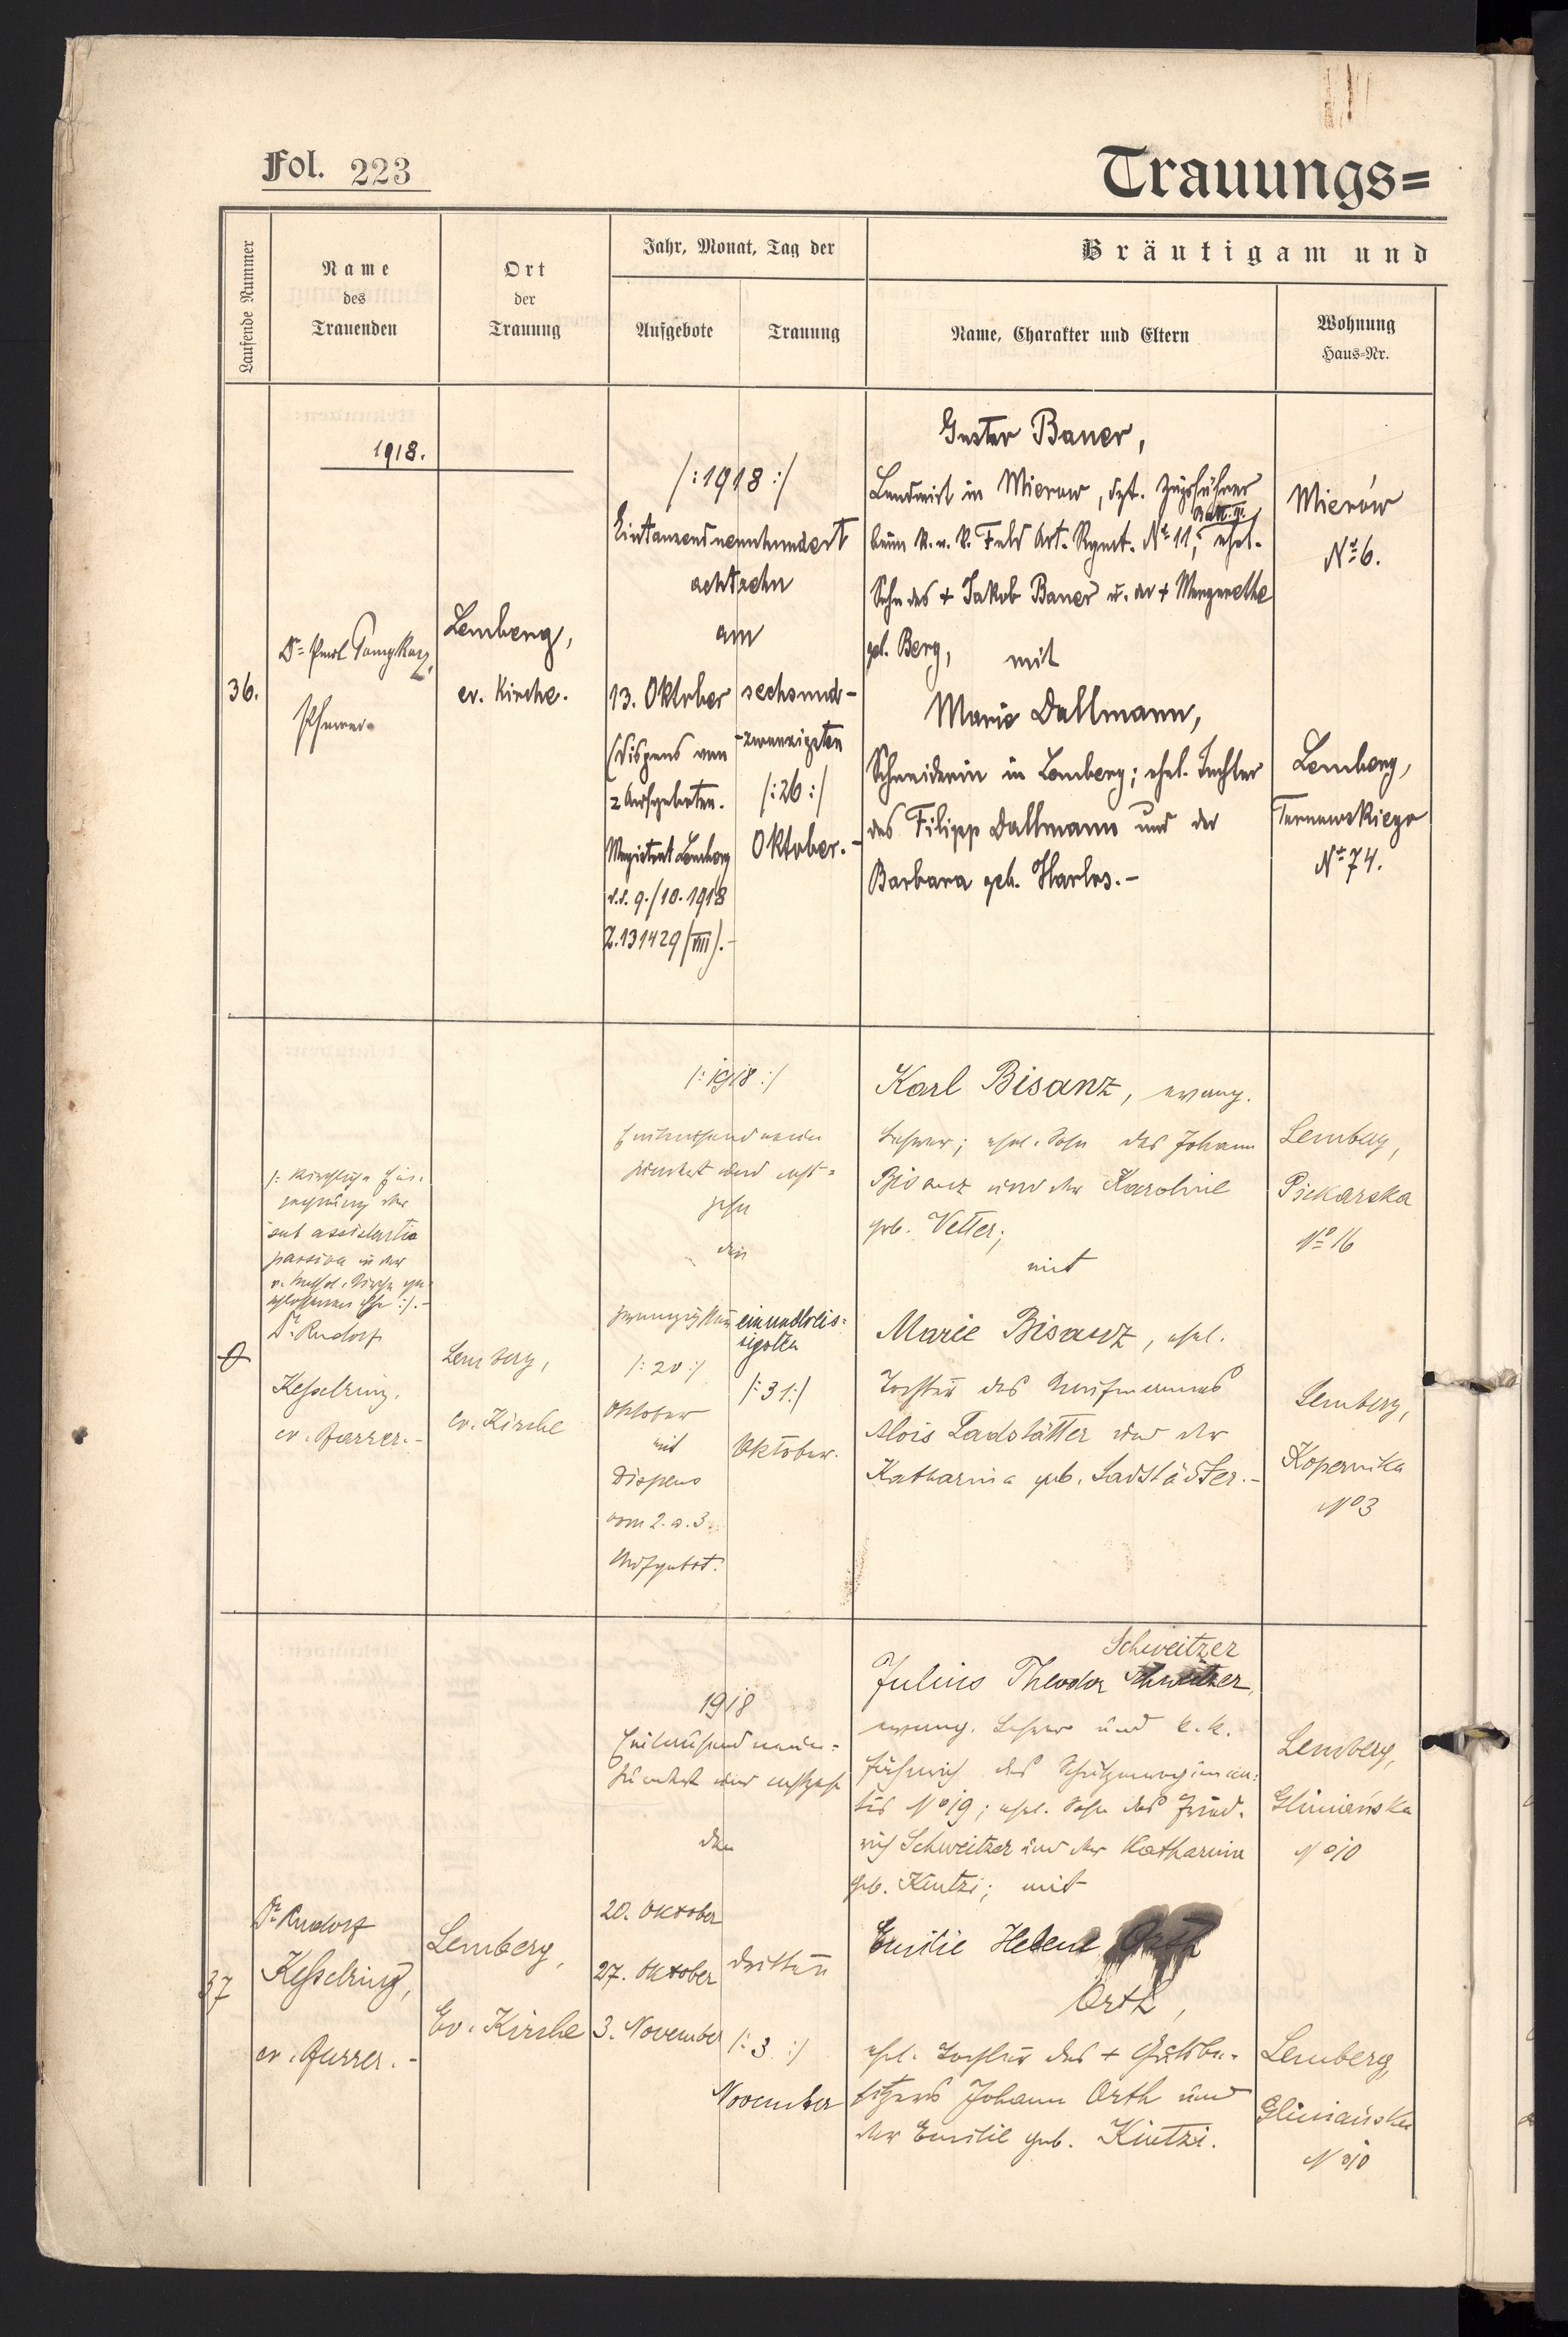 Fol. 223
Trauungs=
Laufende Nummer
Name
des
Trauenden
Ort
der
Trauung
Jahr, Monat, Tag der
Aufgebote
Trauung
Bräutigam und
Name, Charakter und Eltern
Wohnung
Haus=Nr.
1918.
36.
Dr. Paul
Pfarrer.
Lemberg,
ev. Kirche.
/:1918:/
Eintausendneunhundert
achtzehn
am
13. Oktober
(Dispens von
2 Aufgeboten.
Magistrat Lemberg
v. 9./10. 1918
Z. 131429/VIII).-
sechsund-
-zwanzigsten
/:26:/
Oktober.-
Gustav Bauer,
Landwirt in Mierow, dzt. Zugsführer
beim k. u. k. Feld Art. Rgmt. No 11, ehel.
Sohn des + Jakob Bauer u. der + Margarethe
geb. Berg, mit
Marie Dallmann,
Schneiderin in Lemberg; ehel. Tochter
des Filipp Dallmann und der
Barbara geb. Harlos.-
Mierów
No 6.
Lemberg,
Ternowskiego
No 74.
/: Kirchliche Ein-
segnung der
sub assistentia
passiva in der
r. kathol. Kirche ge-
schlossenen Ehe :/.-
Dr. Rudolf
Kesselring,
ev. Pfarrer.-
Lemberg,
ev. Kirche
/:1918:/
Eintausendneun
hundert und acht=
zehn
den
zwanzigsten
/:20:/
Oktober
mit
Dispens
vom 2. u. 3.
Aufgebot.
einunddreis=
sigsten
/:31:/
Oktober.
Karl Bisanz, evang.
Lehrer; ehel. Sohn des Johann
Bisanz und der Karoline
geb. Vetter;
mit
Marie Bisanz, ehel.
Tochter des Kaufmannes
Alois Ladstätter und der
Katharina geb. Ladstädter.-
Lemberg,
Piekarska
No 16
Lemberg,
Kopernika
No 3
37
Dr. Rudolf
Kesselring,
ev. Pfarrer.-
Lemberg,
Ev. Kirche
1918
Eintausendneun=
hundert und achtzehn
den
20. Oktober
27. Oktober
3. November
dritten
/:3:/
November
Schweitzer
Julius Theodor Schweitzer,
evang. Lehrer und k.k.
Fähnrich des Schützenregimen-
tes No 19; ehel. Sohn des Fried-
rich Schweitzer und der Katharina
geb. Kintzi; mit
Emilie Helene Orth
Orth,
ehel. Tochter des + Gutsbe-
sitzers Johann Orth und
der Emilie geb. Kintzi.
Lemberg,
Gliniańska
No 10
Lemberg,
Gliniańska
No 10